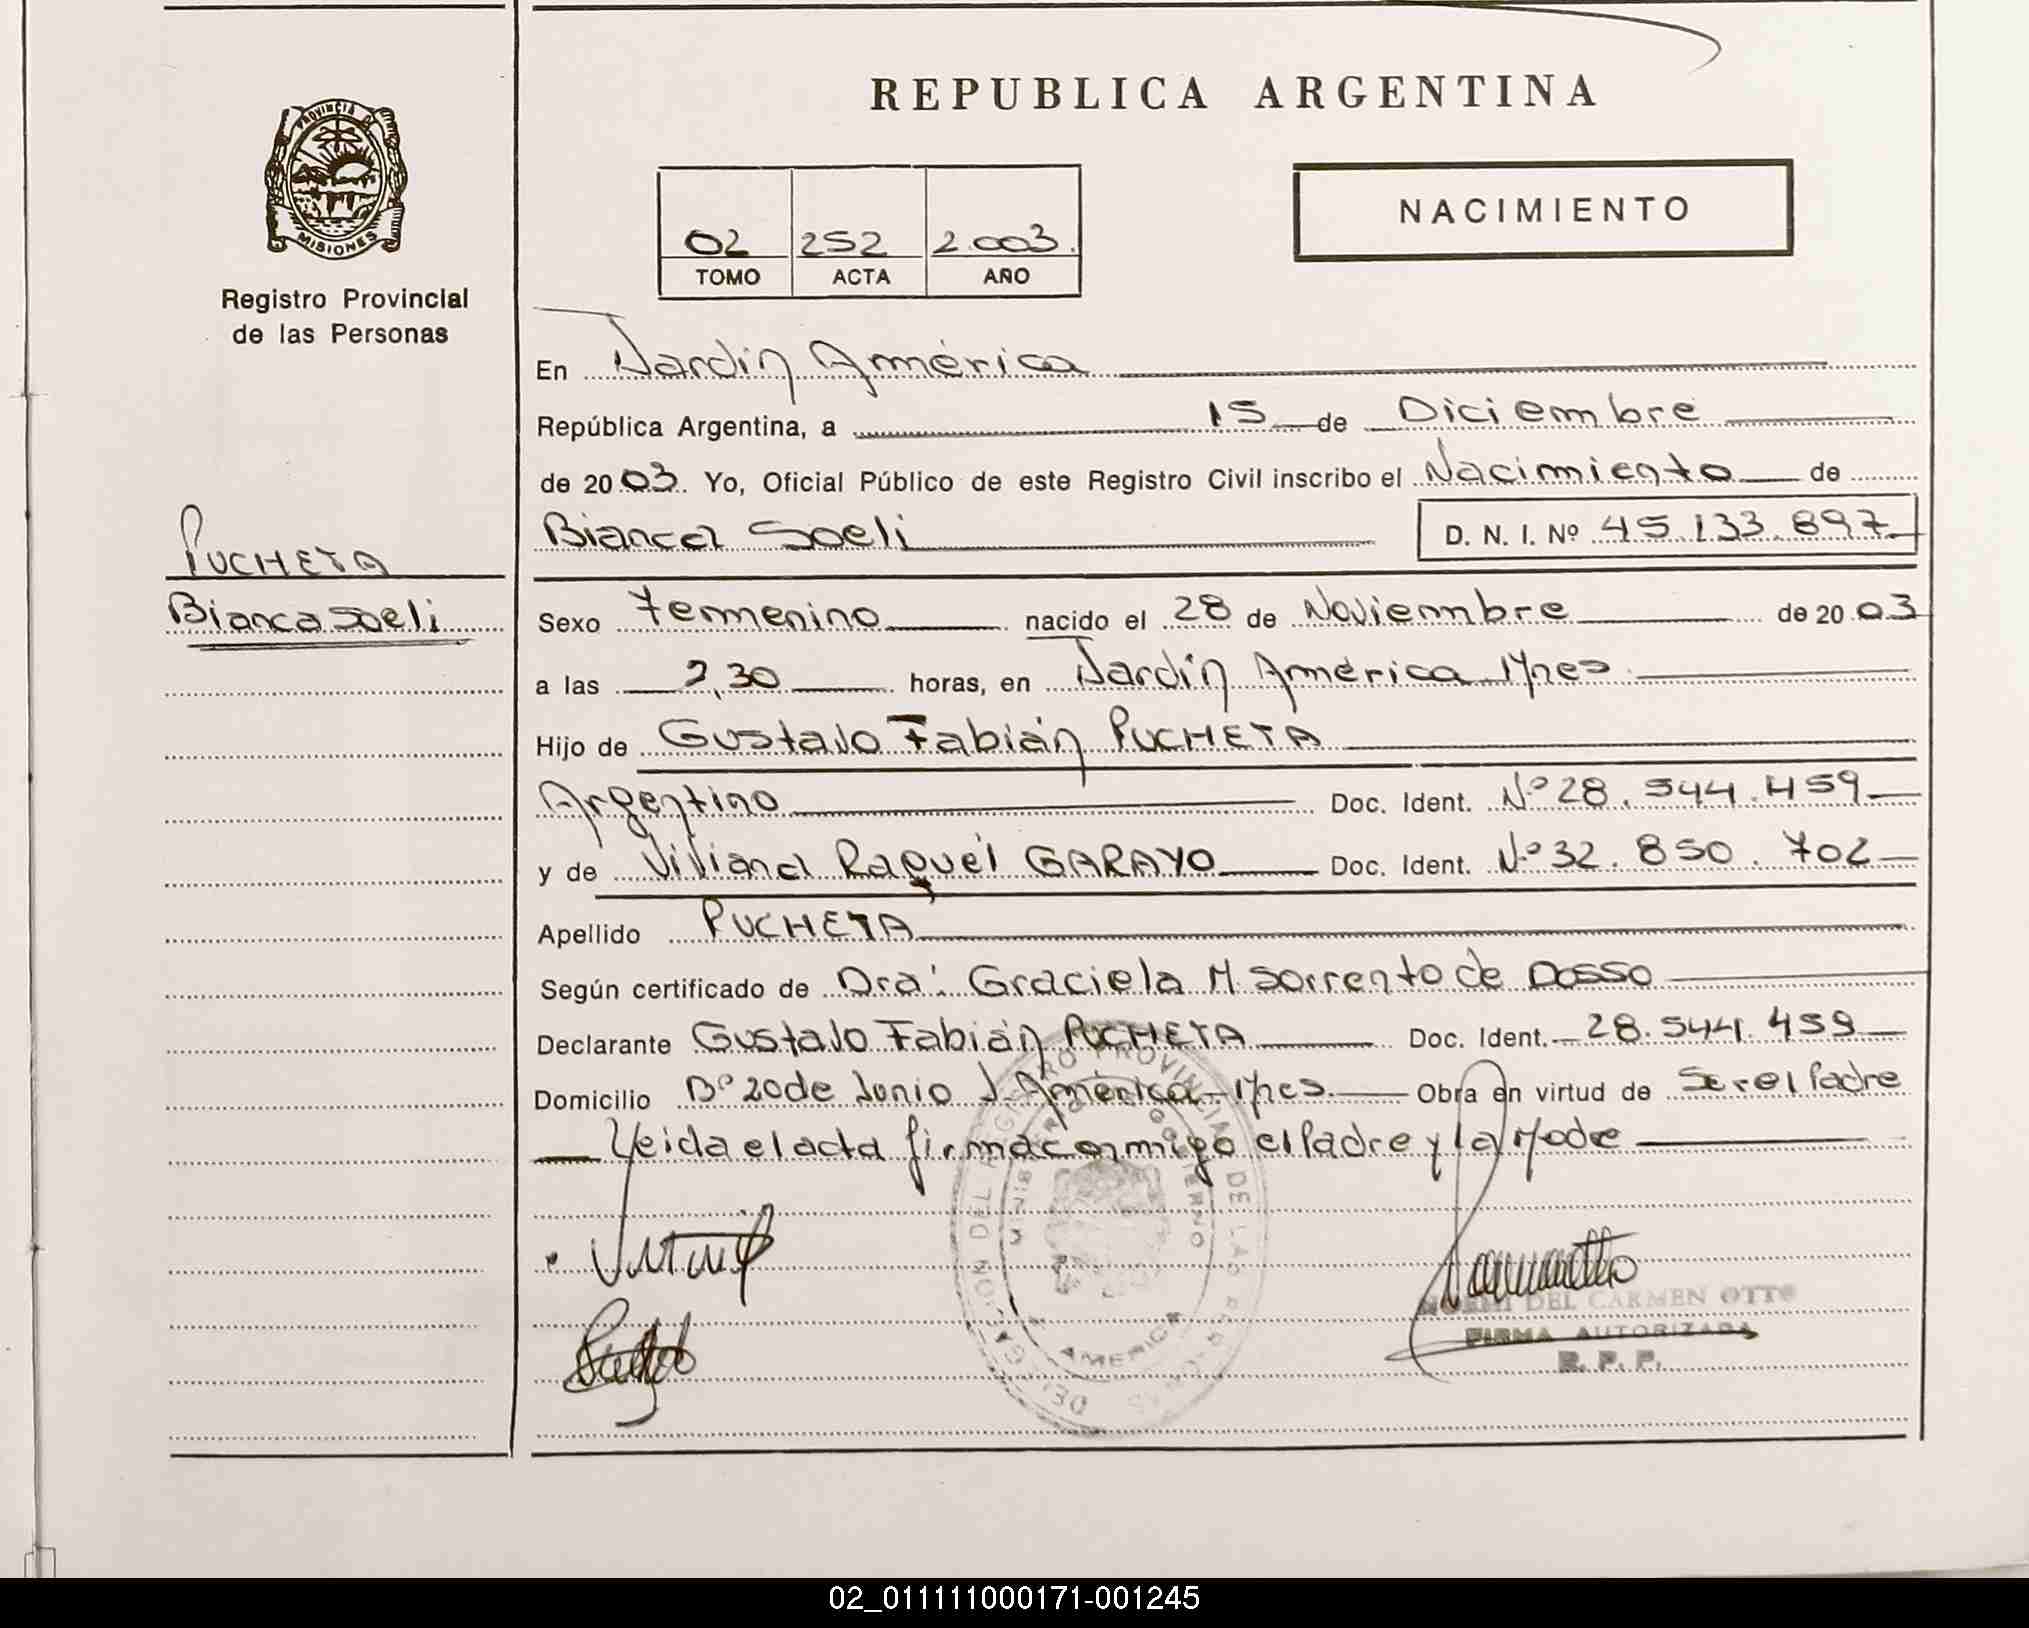 REPUBLICA ARGENTINA
PROVINCIA DE
MISIONES
Registro Provincial
de las Personas
NACIMIENTO
02 252 2.003.
TOMO ACTA AÑO
En Jardín América
República Argentina, a 15 de Diciembre
de 2003. Yo, Oficial Público de este Registro Civil inscribo el Nacimiento de
Bianca Soeli D. N. I. Nº 45.133.897
PUCHETA
Bianca Soeli
Sexo Femenino nacido el 28 de Noviembre de 2003
a las 2,30 horas, en Jardín América Mnes.
Hijo de Gustavo Fabián PUCHETA
Argentino Doc. Ident. Nº 28.544.459
y de Viviana Raquel GARAYO Doc. Ident. Nº 32.850.702
Apellido PUCHETA
Según certificado de Dra. Graciela M. Sorrento de Dosso
Declarante Gustavo Fabián PUCHETA Doc. Ident. 28.544.459
Domicilio Bº 20 de Junio J. América-Mnes. Obra en virtud de Ser el Padre
Leida el acta firma conmigo el Padre y la Madre
DELEGACION DEL REGISTRO PROVINCIAL DE LAS PERSONAS
GOBIERNO
AMERICA
DEL CARMEN OTTO
FIRMA AUTORIZADA
R. P. P.
02_011111000171-001245